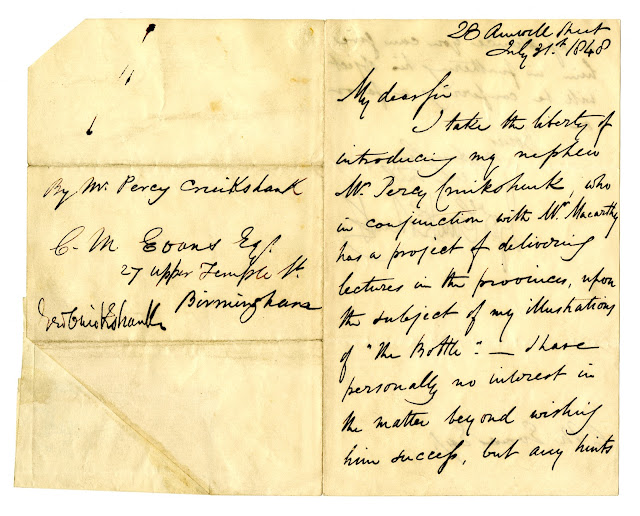 By Mr. Percy Cruikshank
C. M Evans Esqr.
27 upper Temple St.
Birmingham
Geo Cruikshank
23 Amwell Street
July 31st. 1848
My dear Sir
I take the liberty of
introducing my nephew
Mr. Percy Cruikshank, who
in conjunction with Mr. Macarthy
has a project of delivering
lectures in the provinces, upon
the subject of my illustrations
of "the Bottle". — I have
personally no interest in
the matter beyond wishing
him success, but any hints